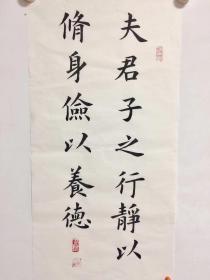 夫君子之行靜以
脩身儉以養德